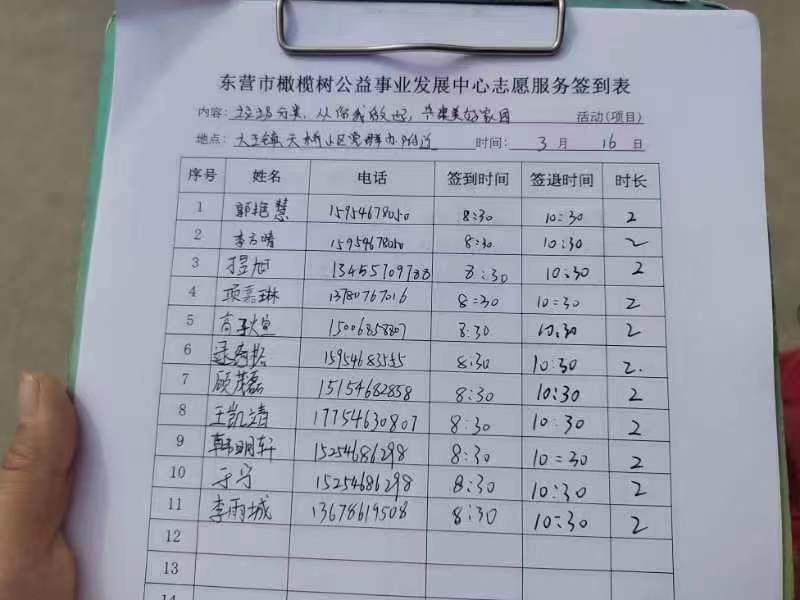 东营市橄榄树公益事业发展中心志愿服务签到表
内容：垃圾分类，从你我做起，共建美好家园 活动(项目)
地点：大王镇天桥小区党群办附近 时间：3月16日
序号 姓名 电话 签到时间 签退时间 时长
1 郭艳慧 15954678050 8:30 10:30 2
2 李方晴 15954678050 8:30 10:30 2
3 旭 13455709788 8:30 10:30 2
4 项嘉琳 13780767016 8:30 10:30 2
5 高 15006858807 8:30 10:30 2
6 15954683555 8:30 10:30 2.
7 顾茂磊 15154682858 8:30 10:30 2
8 王凯靖 17754630807 8:30 10:30 2
9 韩明轩 15254686298 8:30 10:30 2
10 于宁 15254686298 8:30 10:30 2
11 李雨城 13678619508 8:30 10:30 2
12
13
14